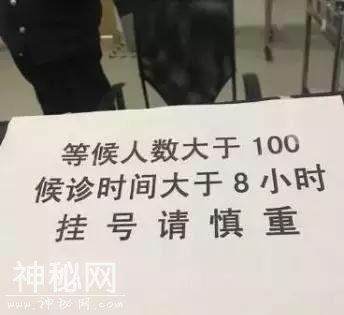 等候人数大于 100
候诊时间大于 8 小时
挂 号 请 慎 重
神秘网
www.shenmw.com